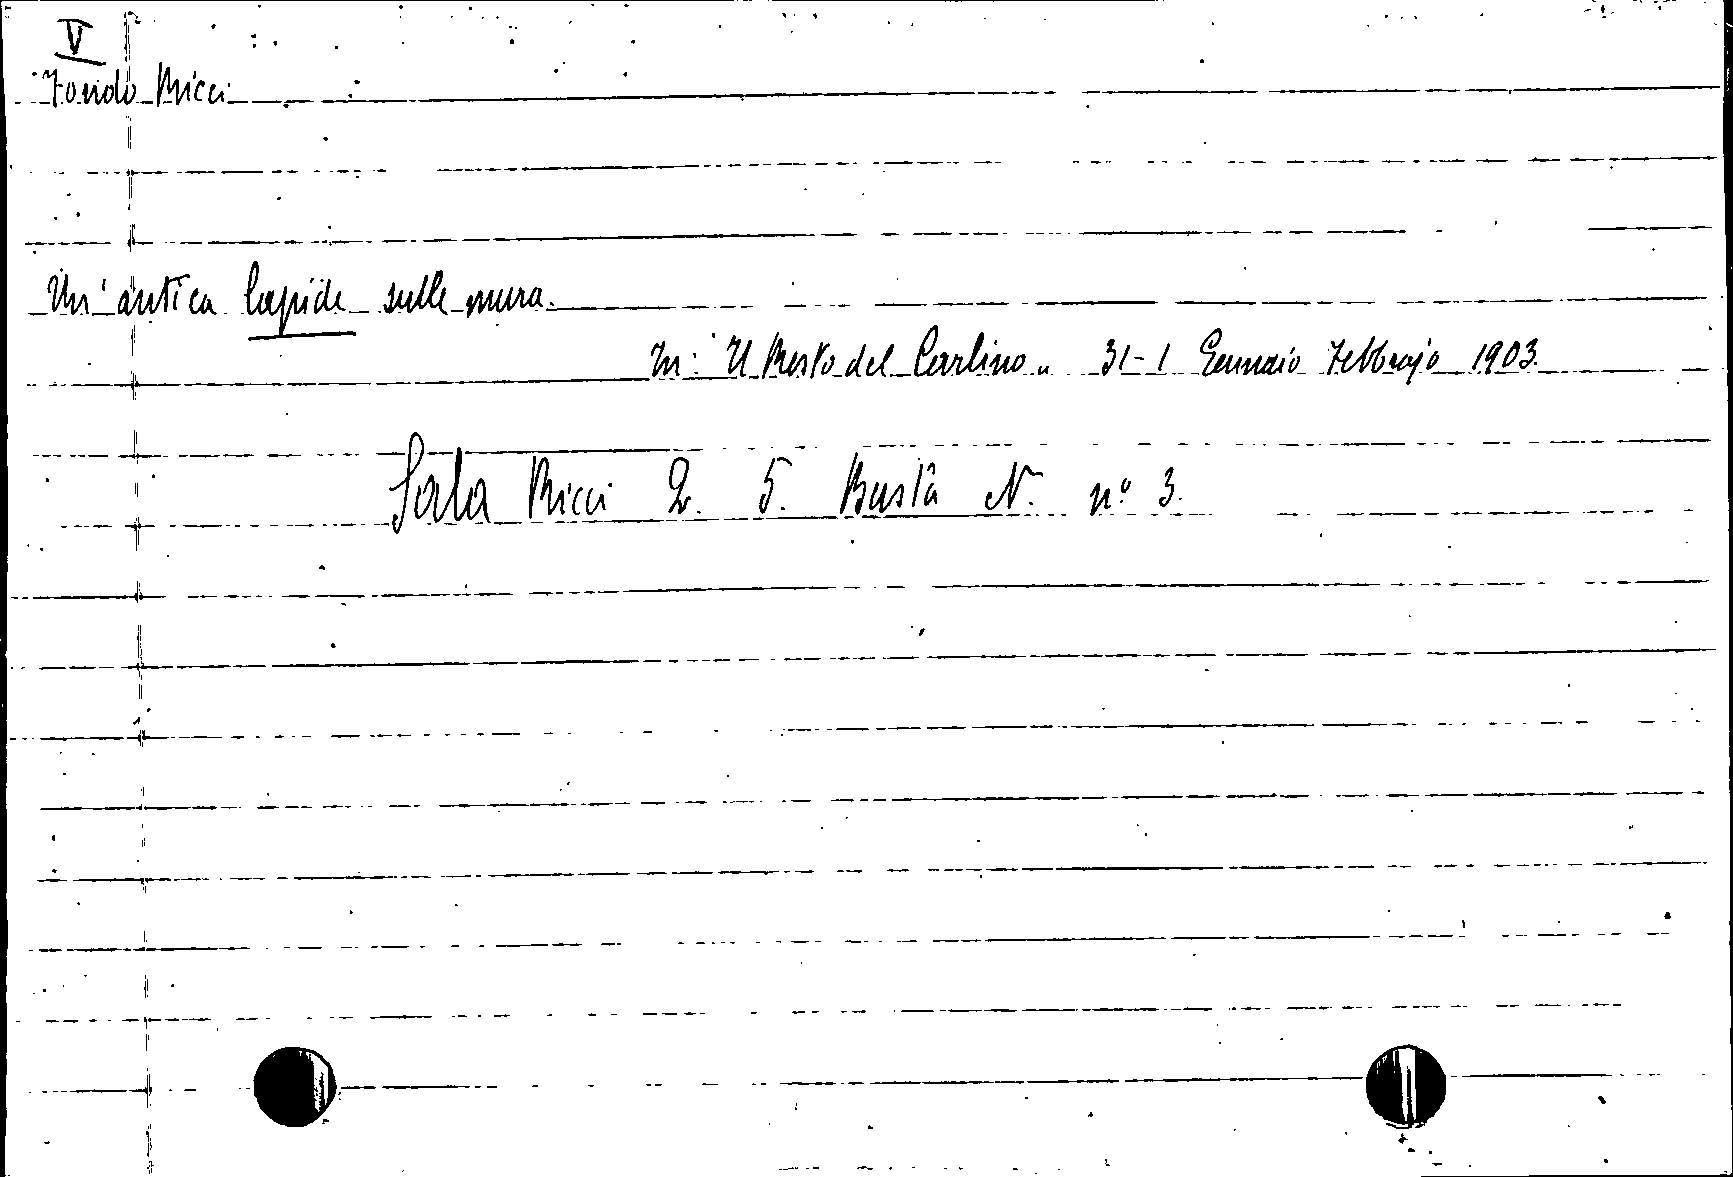 V
Fondo Ricci
Un'antica lapide sulle mura.
In: "Il Resto del Carlino" 31-1 Gennaio Febbrajo 1903.
Sala Ricci 2. 5. Busta N. n° 3.